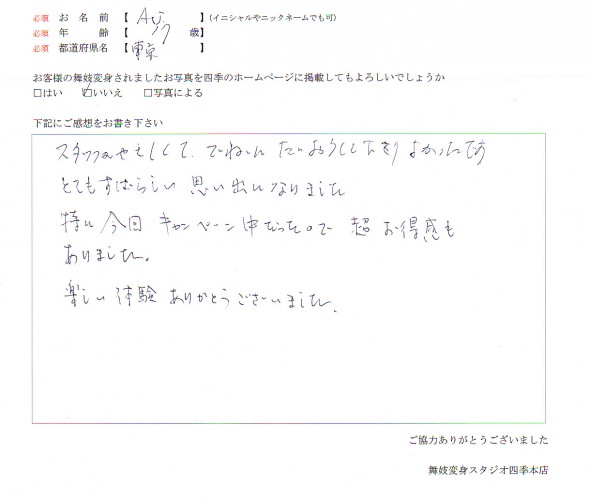 必須 お名前【 】(イニシャルやニックネームでも可)
必須 年齢【 17 歳】
必須 都道府県名【 東京 】
お客様の舞妓変身されましたお写真を四季のホームページに掲載してもよろしいでしょうか
□はい ☑いいえ □写真による
下記にご感想をお書き下さい
スタッフもやさしくて、ていねいに たいおうして下さり よかったです
とてもすばらしい 思い出になりました
特に 今回 キャンペーン中だったので 超 お得感も
ありました。
楽しい 体験 ありがとうございました。
ご協力ありがとうございました
舞妓変身スタジオ四季本店